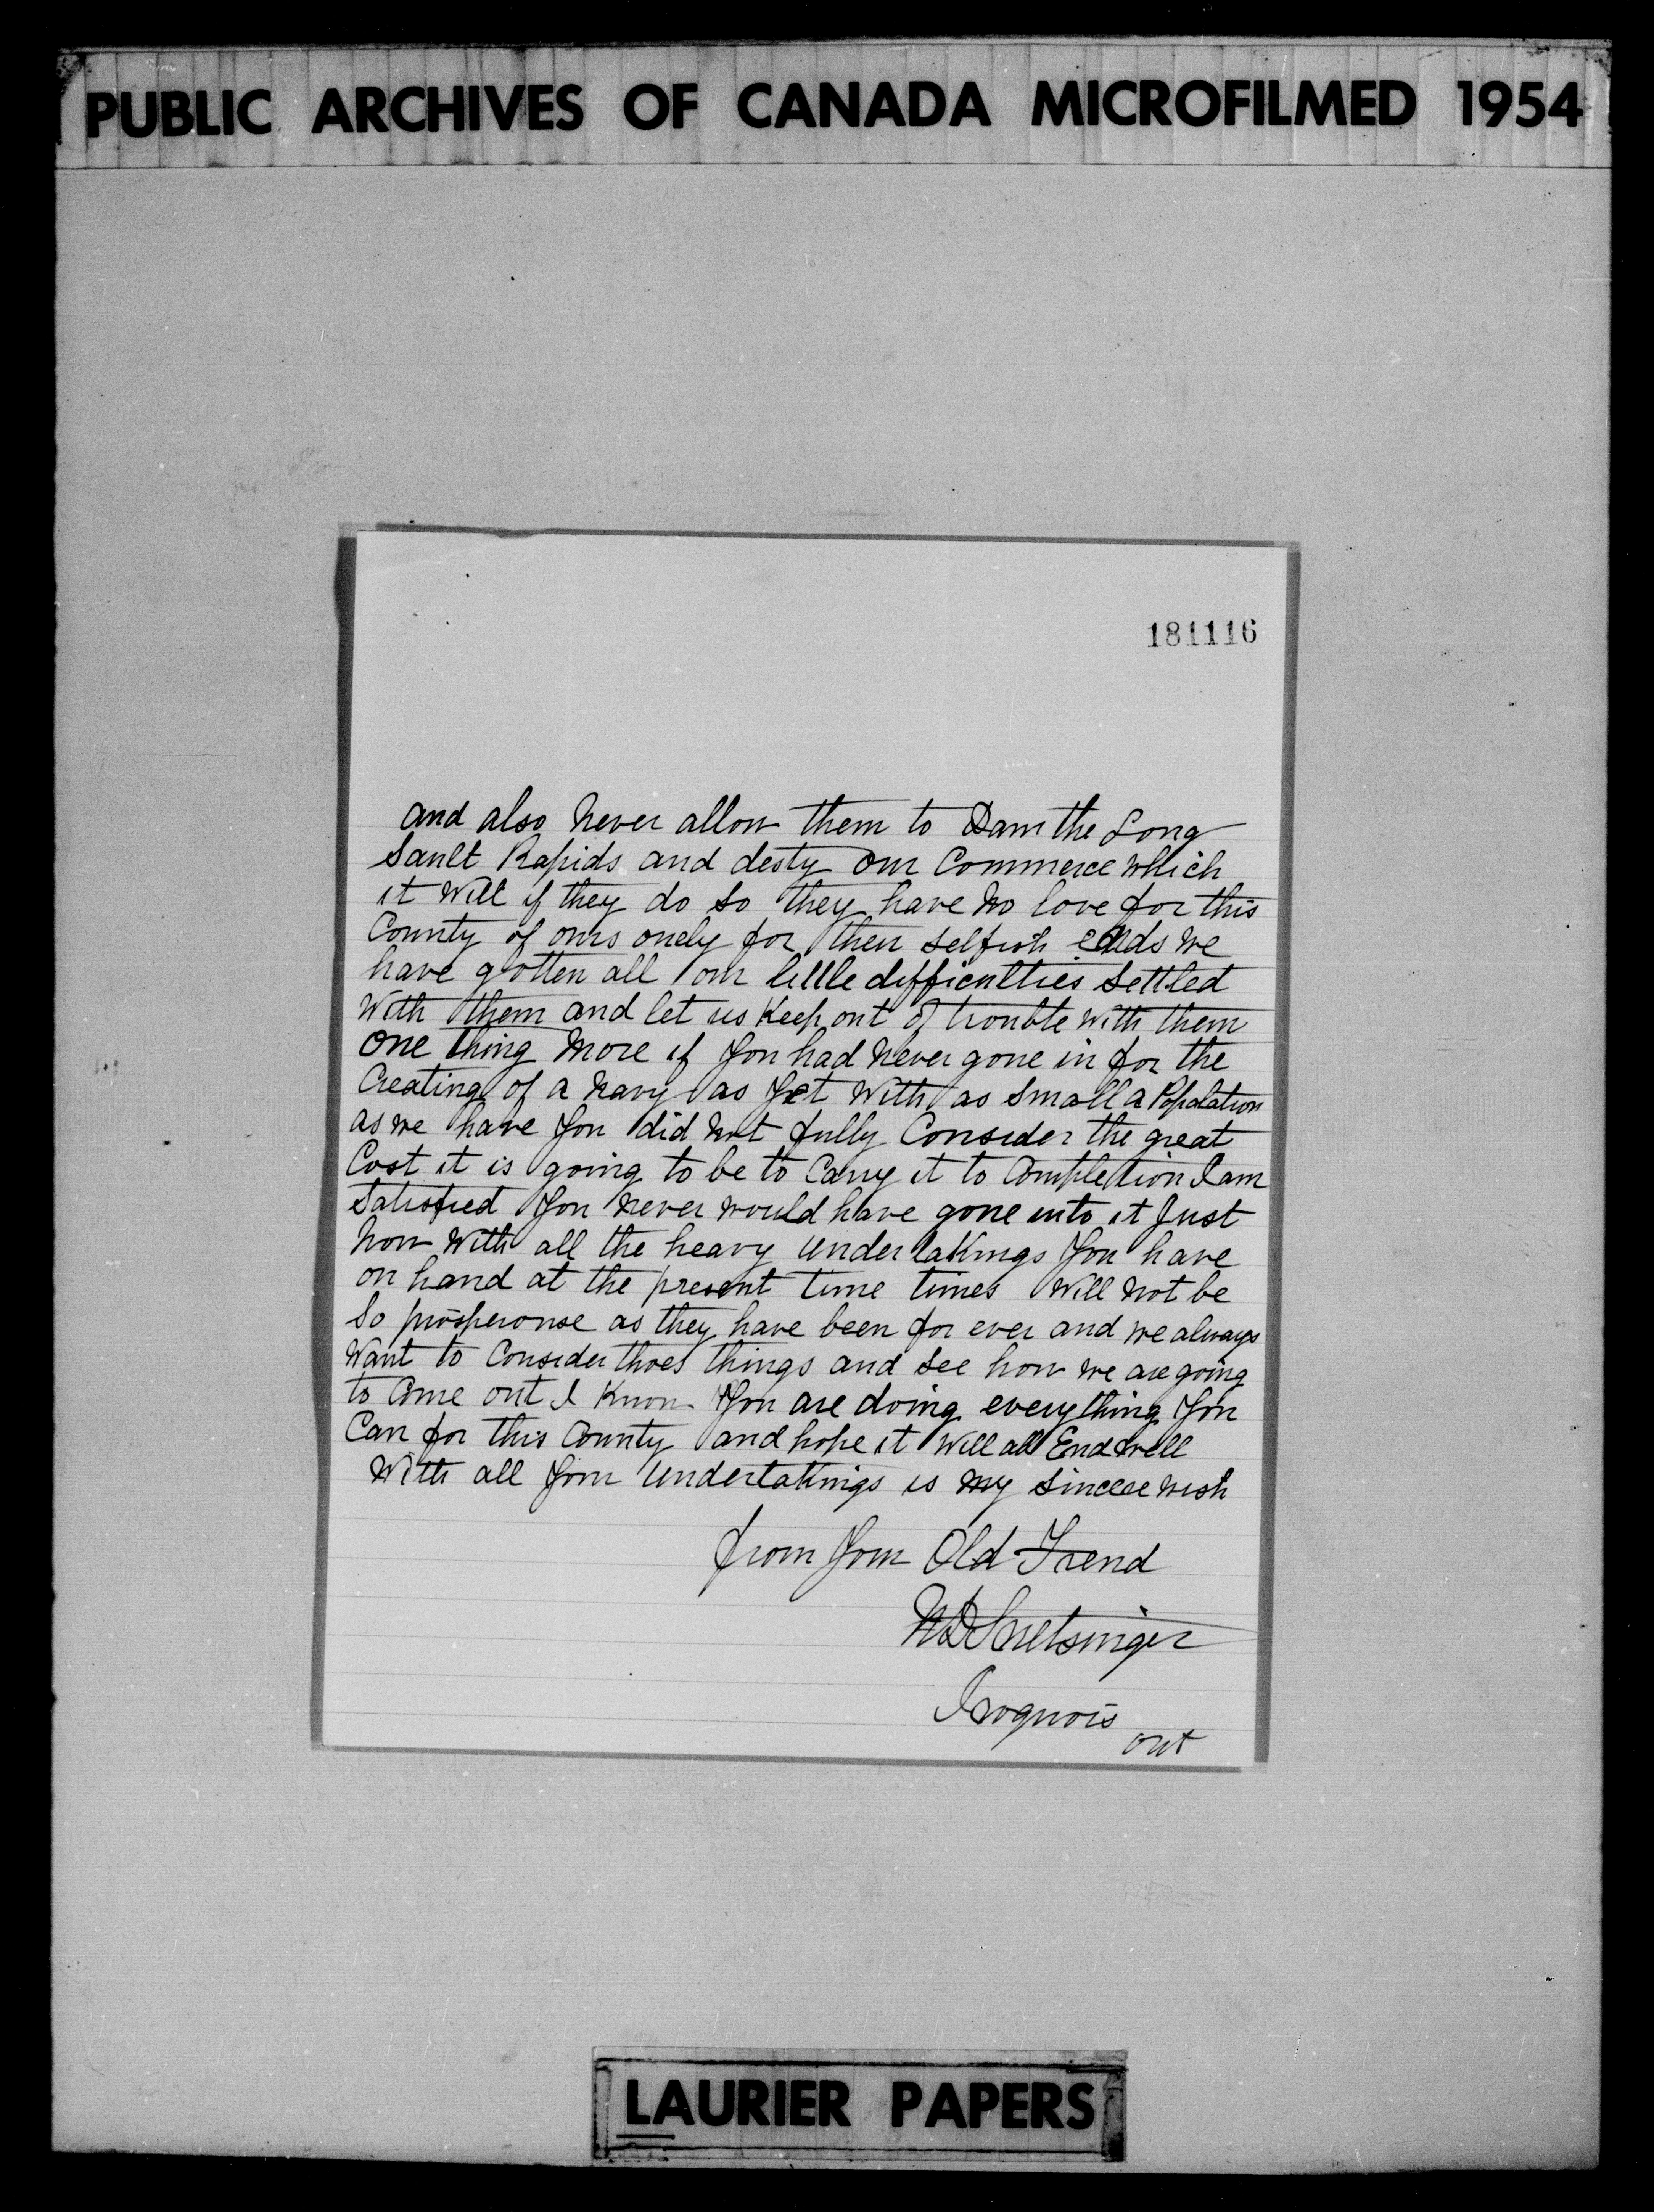 PUBLIC ARCHIVES OF CANADA MICROFILMED 1954
181116
and also never allow them to Dam the Long
Sault Rapids and desty our Commerce which
it will if they do so they have no love for this
County of ours onely for their selfish ends we
have gotten all our little difficulties settled
with them and let us Keep out of trouble with them
one thing more if you had never gone in for the
Creating of a navy as yet with as small a Popolation
as we have you did not fully Consider the great
Cost it is going to be to Carry it to Completion I am
satisfied you never would have gone into it Just
now with all the heavy undertakings you have
on hand at the present time times will not be
so prosperouse as they have been for ever and we always
want to Consider thoes things and see how we are going
to Come out I know you are doing everything you
Can for this County and hope it will all End well
with all your undertakings is my sincere wish
from your Old Frend
Snetsinger
Iroquois
ont
LAURIER PAPERS